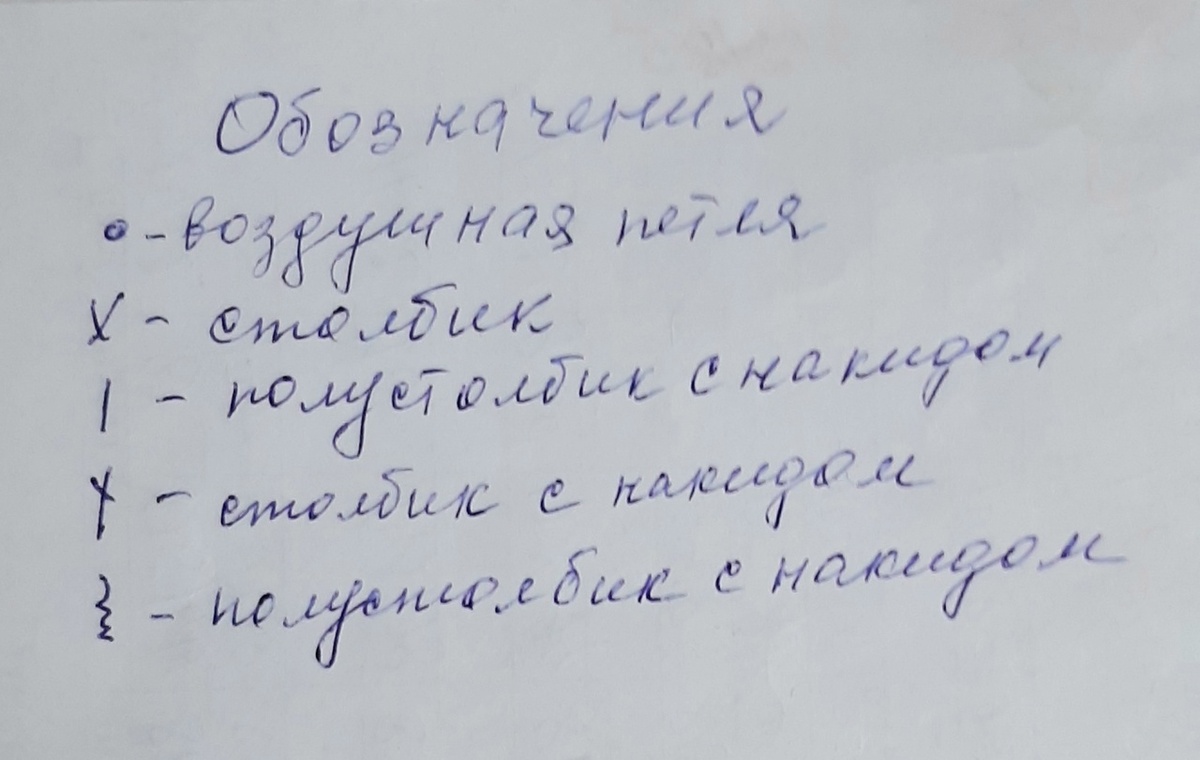 Обозначения
о - воздушная петля
х - столбик
| - полустолбик с накидом
† - столбик с накидом
} - полустолбик с накидом